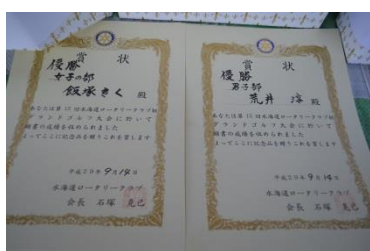 賞状
優勝
女子の部
飯塚きく 殿
あなたは第19回水海道ロータリークラブ杯
グランドゴルフ大会に於いて
頭書の成績を收められました
よってここに記念品を贈りこれを賞します
平成29年9月14日
水海道ロータリークラブ
会長 石塚 克己
賞状
優勝
男子部
荒井 淳 殿
あなたは第19回水海道ロータリークラブ杯
グランドゴルフ大会に於いて
頭書の成績を收められました
よってここに記念品を贈りこれを賞します
平成29年9月14日
水海道ロータリークラブ
会長 石塚 克己